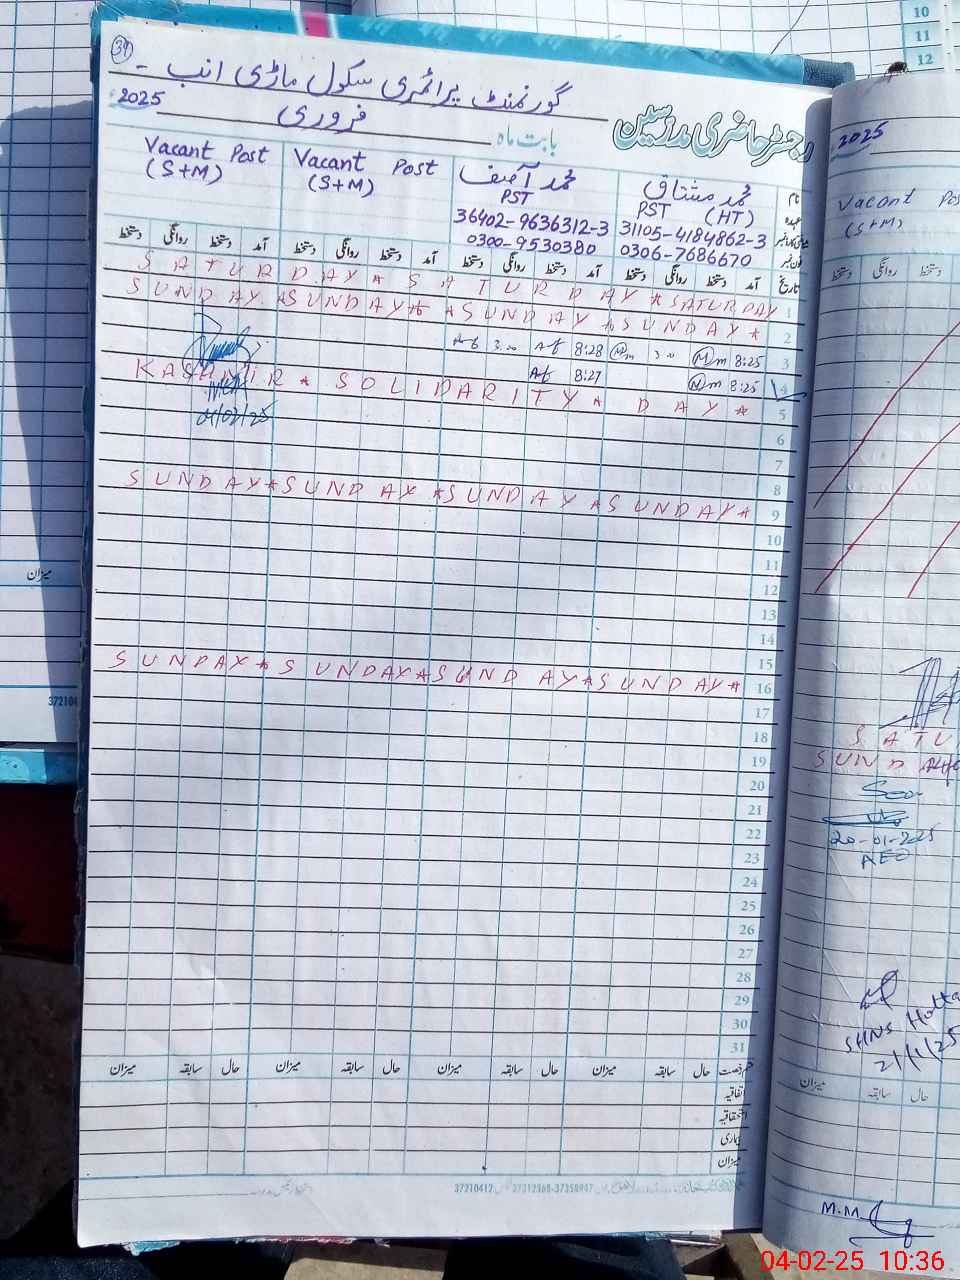 10
11
12
31
گورنمنٹ پرائمری سکول ماڑی انب -
رجسٹر حاضری مدرسین
2025
فروری
بابت ماہ
نام محمد مشتاق محمد آصف Vacant Post Vacant Post
عہدہ PST (HT) PST (S+M) (S+M)
31105-4184862-3 36402-9636312-3
فون نمبر 0306-7686670 0300-9530380
تاریخ آمد دستخط روانگی دستخط آمد دستخط روانگی دستخط آمد دستخط روانگی دستخط آمد دستخط روانگی دستخط
SATURDAY * SATURDAY * SATURDAY 1
SUNDAY * SUNDAY * * SUNDAY * SUNDAY * 2
3.00 8:28 3.00 Mm 8:25 3
8:27 Mm 8:25 4
KASHMIR * SOLIDARITY * DAY * 5
04/02/25
6
7
8
SUNDAY * SUNDAY * SUNDAY * SUNDAY * 9
10
11
12
13
14
15
SUNDAY * SUNDAY * SUNDAY * SUNDAY * 16
17
18
19
20
21
22
23
24
25
26
27
28
29
30
31
رخصت حال سابقہ میزان حال سابقہ میزان حال سابقہ میزان حال سابقہ میزان
اتفاقیہ
استحقاقیہ
بیماری
میزان
37210412
37312368-37358947
میزان
37210
2025
Vacant Pos
(S+M)
دستخط روانگی دستخط
SATU
SUND
20-01-2025
AEO
21/1/25
میزان سابقہ حال
M.M
04-02-25 10:36